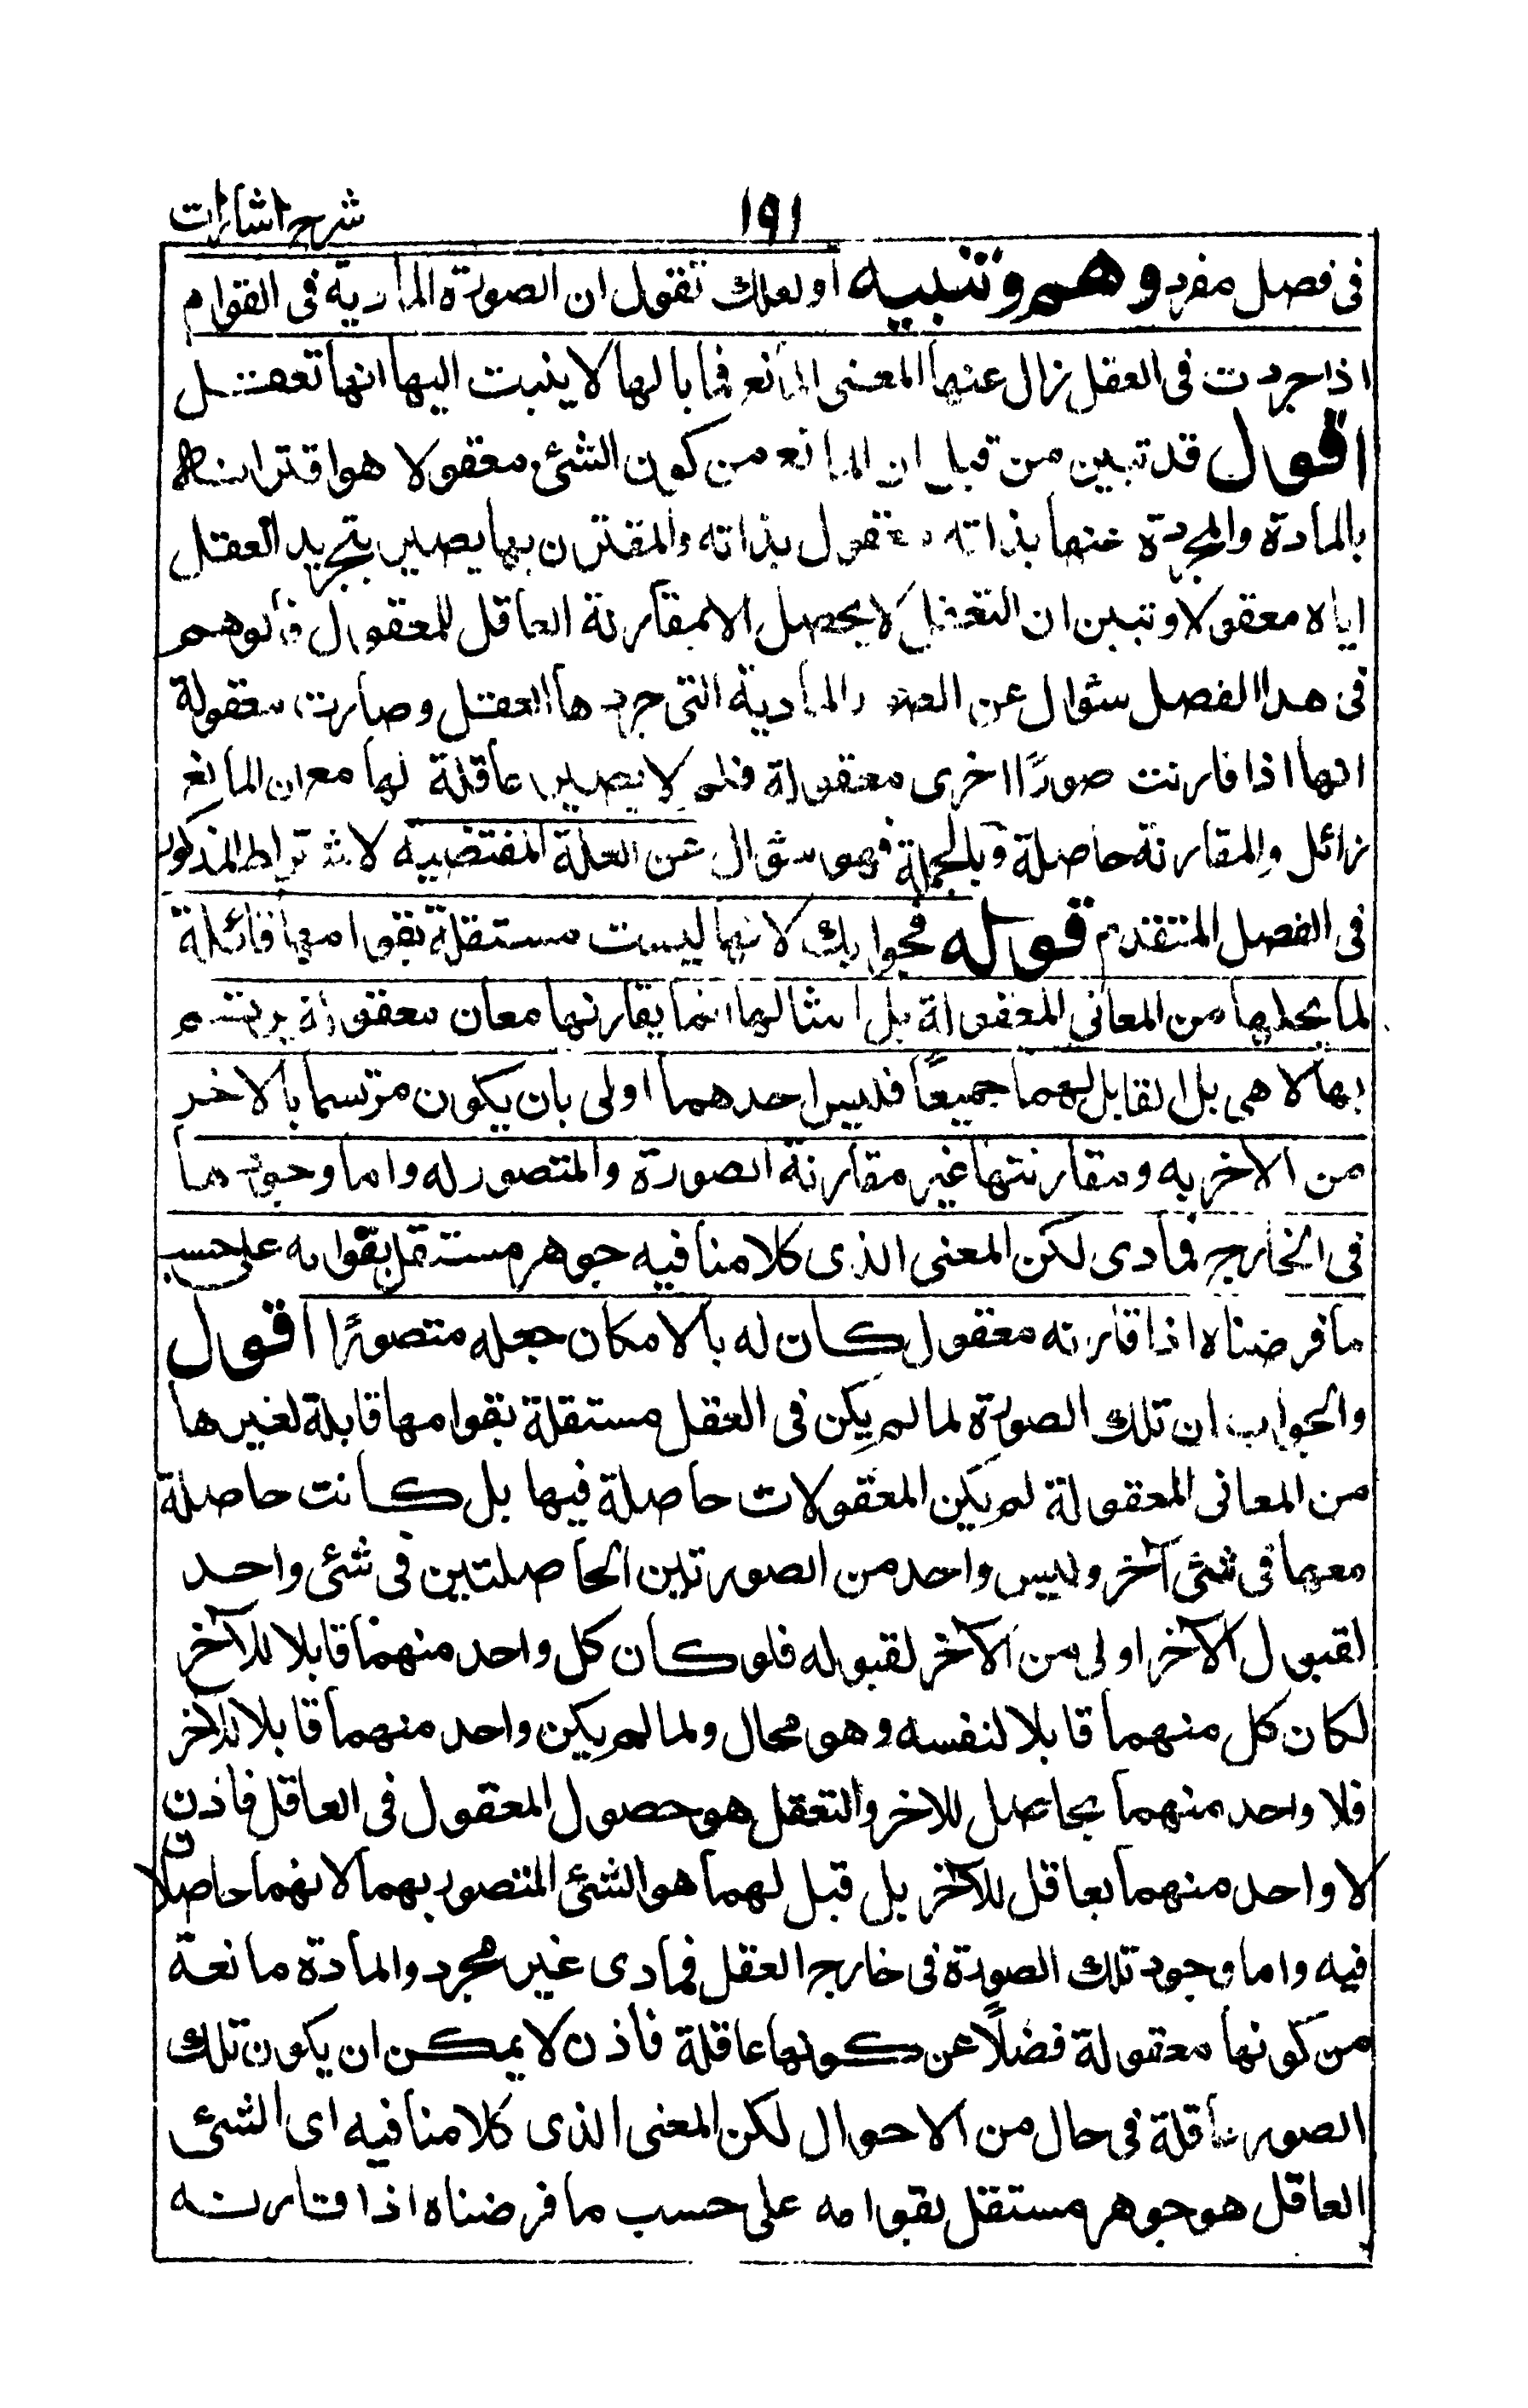 ١٩١ شرح اشارات
فى فصل مفرد وهم وتنبيه او لعلك تقول ان الصورة المادية فى القوام
اذا جردت فى العقل زال عنها المعنى المانع فما بالها لا ينبت اليها انها تعقل
اقول قد تبين من قبل ان المانع من كون الشئ معقولا هو اقترانه
بالمادة والمجردة عنها بذاته معقول بذاته والمقترن بها يصير بتجريد العقل
اياه معقولا وتبين ان التعقل لا يحصل الا بمقارنة العاقل للمعقول فالوهم
فى هذا الفصل سئوال عن الصور المادية التى جردها العقل وصارت معقولة
انها اذا قارنت صورًا اخرى معقولة فلم لا يصير عاقلة لها مع ان المانع
زائل والمقارنة حاصلة وبالجملة فهو سئوال عن العلة المقتضية لاشتراط المذكور
فى الفصل المتقدم قوله فجوابك لانها ليست مستقلة بقوامها قابلة
لما يحلها من المعانى المعقولة بل امثالها انما يقارنها معان معقولة يرتسم
بها لا هى بل القابل لهما جميعًا فليس احدهما اولى بان يكون مرتسما بالاخر
من الاخر به ومقارنتها غير مقارنة الصورة والمتصور له واما وجودها
فى الخارج فمادى لكن المعنى الذى كلامنا فيه جوهر مستقل بقوامه على حسب
ما فرضناه اذا قارنه معقول كان له بالامكان جعله متصورًا اقول
والجواب ان تلك الصورة لما لم يكن فى العقل مستقلة بقوامها قابلة لغيرها
من المعانى المعقولة لم يكن المعقولات حاصلة فيها بل كانت حاصلة
معها فى شئ آخر وليس واحد من الصورتين الحاصلتين فى شئ واحد
لقبول الآخر اولى من الآخر لقبوله فلو كان كل واحد منهما قابلا للآخر
لكان كل منهما قابلا لنفسه وهو محال ولما لم يكن واحد منهما قابلا للآخر
فلا واحد منهما بحاصل للاخر والتعقل هو حصول المعقول فى العاقل فاذن
لا واحد منهما بعاقل للآخر بل قبل لهما هو الشئ المتصور بهما لانهما حاصلان
فيه واما وجود تلك الصورة فى خارج العقل فمادى غير مجرد والمادة مانعة
من كونها معقولة فضلًا عن كونها عاقلة فاذن لا يمكن ان يكون تلك
الصور عاقلة فى حال من الاحوال لكن المعنى الذى كلامنا فيه اى الشئ
العاقل هو جوهر مستقل بقوامه على حسب ما فرضناه اذا قارنه